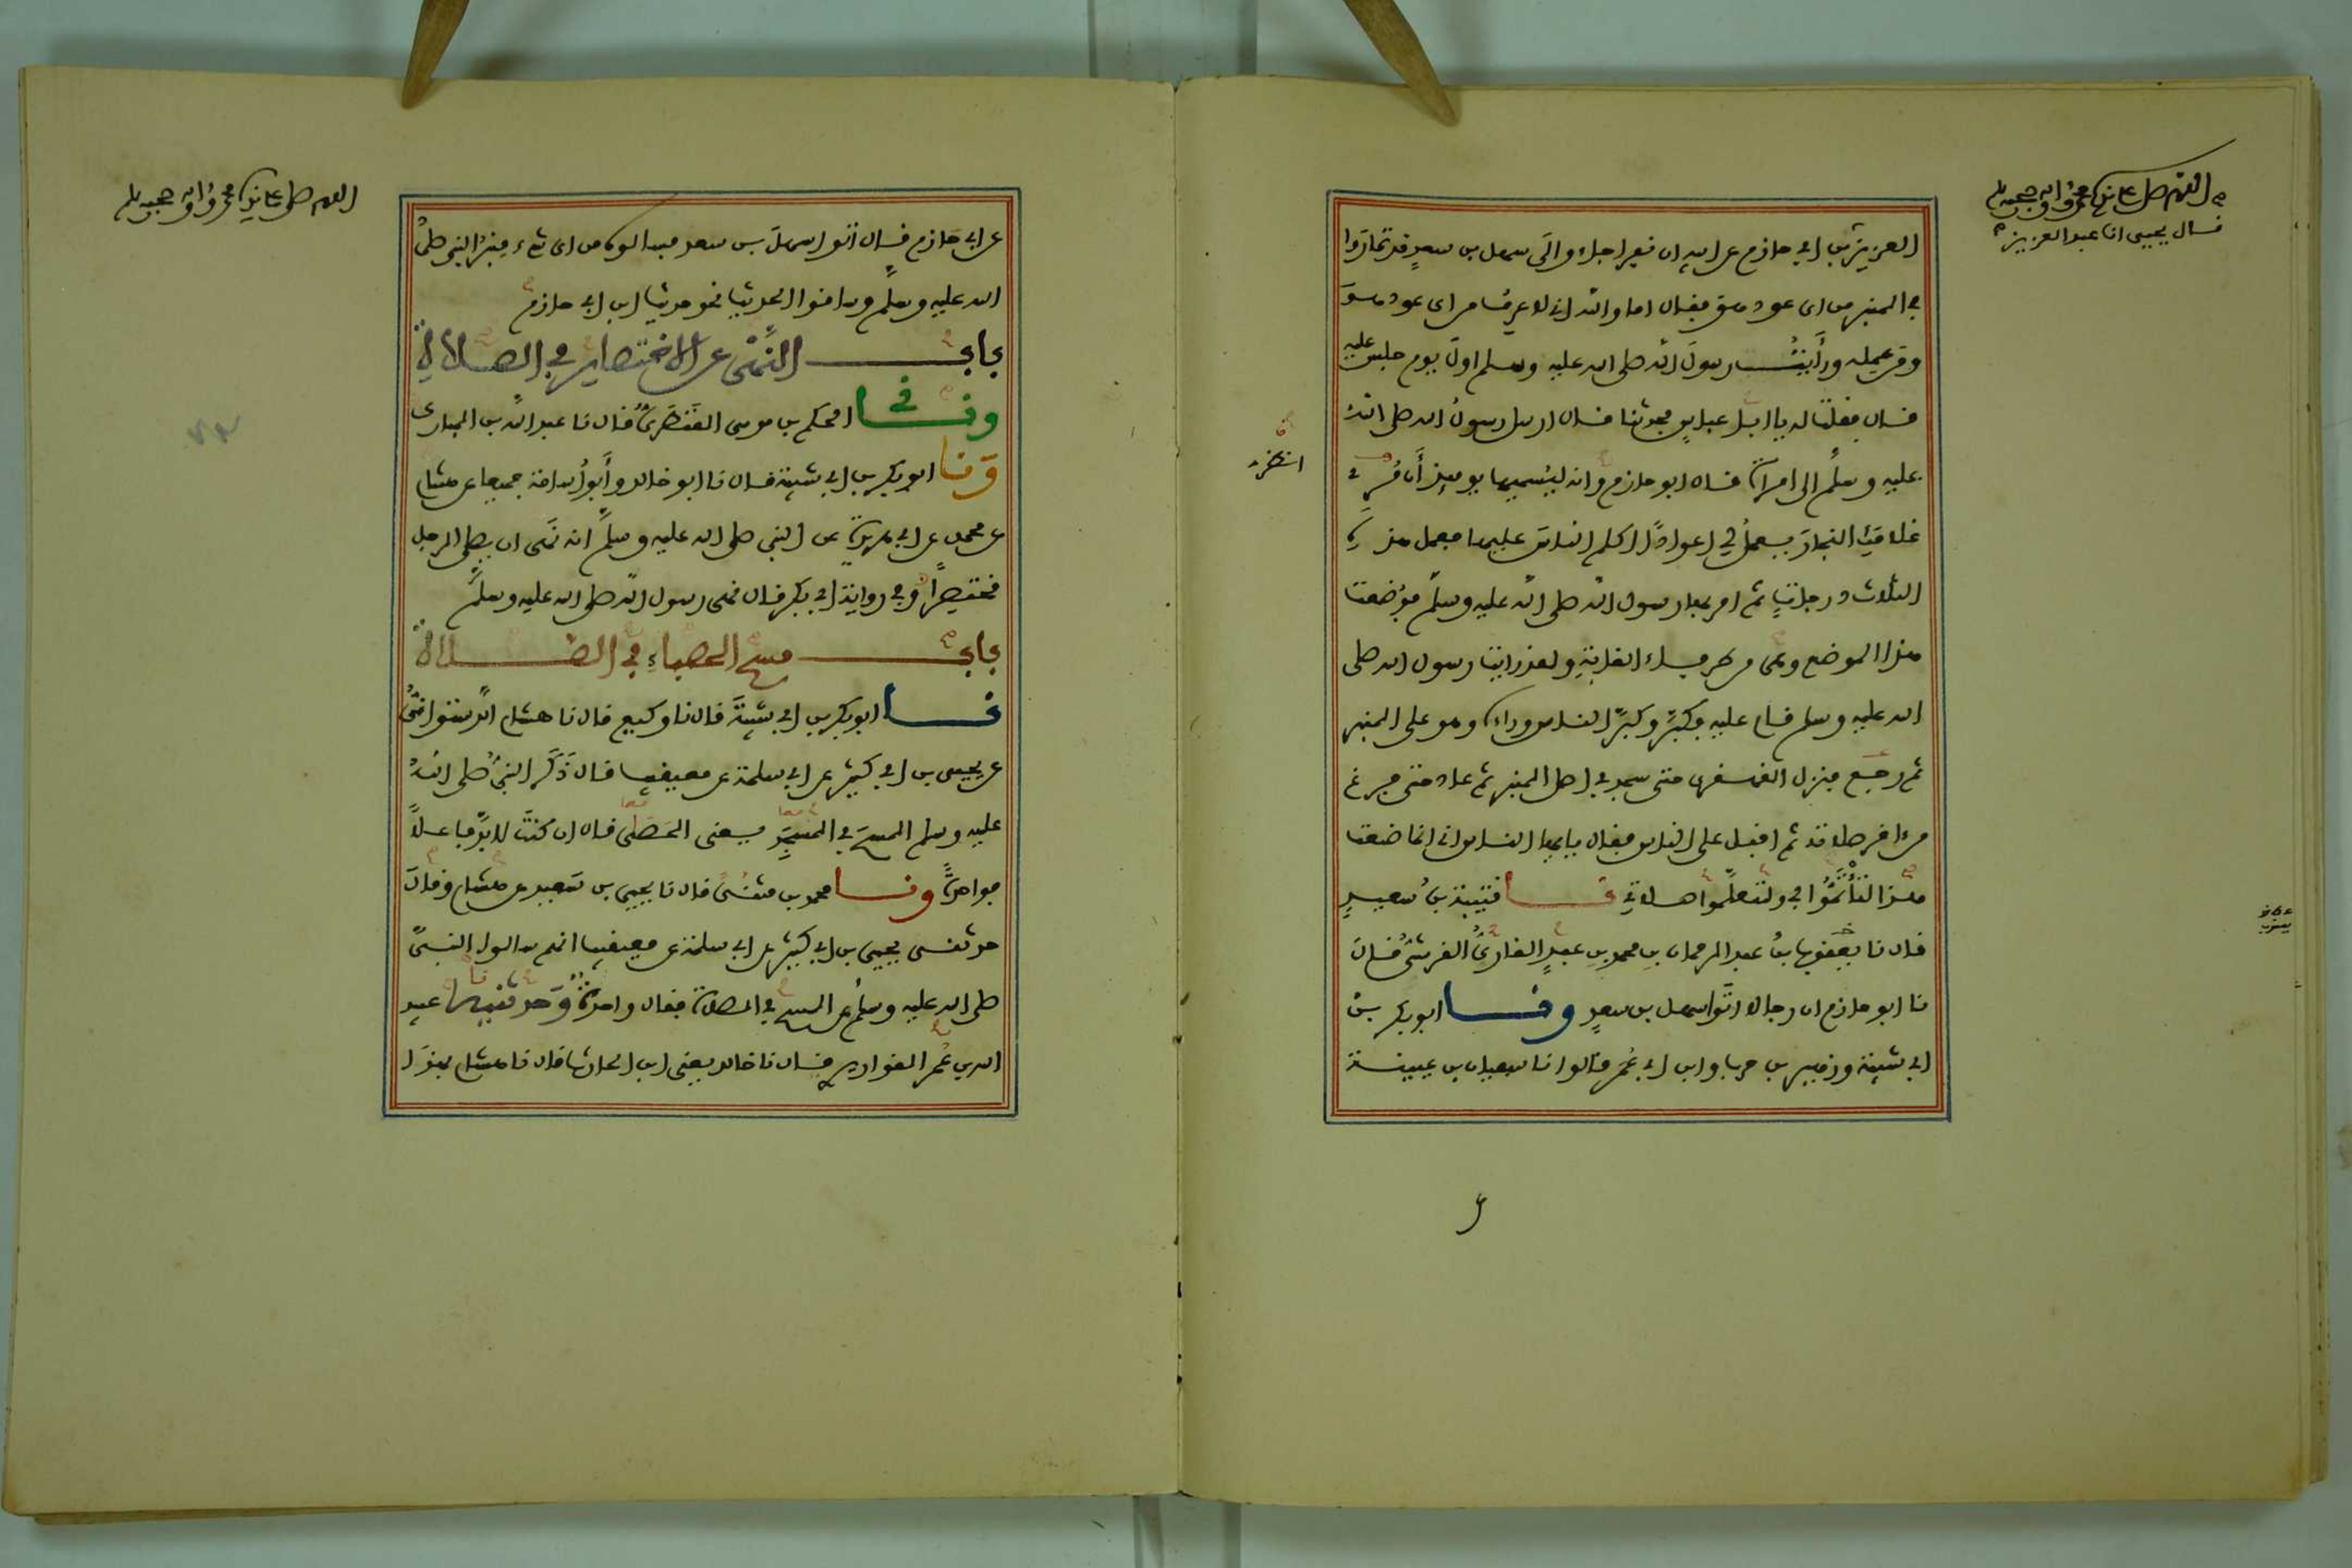 اللهم صل على نبيك محمد وآله وصحبه وسلم
قال يحيى انا عبد العزيز
العزيز بن ابي حازم عن ابيه ان نفرا جاءوا الى سهل بن سعد قد تماروا
في المنبر من اى عود هو فقال اما والله اني لاعرف من اى عود هو
ومن عمله ورأيت رسول الله صلى الله عليه وسلم اول يوم جلس عليه
قال فقلت له يا ابا عباس فحدثنا قال ارسل رسول الله صلى الله
عليه وسلم الى امرأة قال ابو حازم وانه ليسميها يومئذ
انظري
غلامك النجار يعمل لي اعوادا اكلم الناس عليها فعمل هذه
الثلاث درجات ثم امر بها رسول الله صلى الله عليه وسلم فوضعت
هذا الموضع وهي من طرفاء الغابة ولقد رايت رسول الله صلى
الله عليه وسلم قام عليه فكبر وكبر الناس وراءه وهو على المنبر
ثم رجع فنزل القهقرى حتى سجد في اصل المنبر ثم عاد حتى فرغ
من اخر صلاته ثم اقبل على الناس فقال يايها الناس اني انما صنعت
هذا لتأتموا بي ولتعلموا صلاتي نا قتيبة بن سعيد
قال نا يعقوب بن عبد الرحمان بن محمد بن عبد القاري القرشي قال
نا ابو حازم ان رجالا اتوا سهل بن سعد ونا ابو بكر بن
ابي شيبة وزهير بن حرب وابن ابي عمر قالوا نا سفيان بن عيينة
اللهم صل على نبيك محمد وآله وصحبه وسلم
عن ابي حازم قال اتوا سهل بن سعد فسالوه من اى شيء منبر النبي صلى
الله عليه وسلم وساقوا الحديث نحو حديث ابن ابي حازم
باب النهي عن الاختصار في الصلاة
ونا الحكم بن موسى القنطري قال نا عبد الله بن المبارك
ونا ابو بكر بن ابي شيبة قال نا ابو خالد وأبو أسامة جميعا عن هشام
عن محمد عن ابي هريرة عن النبي صلى الله عليه وسلم انه نهى ان يصلي الرجل
مختصرا وفي رواية ابي بكر قال نهى رسول الله صلى الله عليه وسلم
باب مسح الحصباء في الصلاة
نا ابو بكر بن ابي شيبة قال نا وكيع قال نا هشام الدستوائي
عن يحيى بن ابي كثير عن ابي سلمة عن معيقيب قال ذكر النبي صلى الله
عليه وسلم المسح في المسجد يعني الحصى قال ان كنت لا بد فاعلا
فواحدة ونا محمد بن مثنى قال نا يحيى بن سعيد عن هشام قال
حدثني يحيى بن ابي كثير عن ابي سلمة عن معيقيب انهم سالوا النبي
صلى الله عليه وسلم عن المسح في الصلاة فقال واحدة وحدثنيه عبيد
الله بن عمر القواريري قال نا خالد يعني ابن الحارث قال نا هشام بهذا